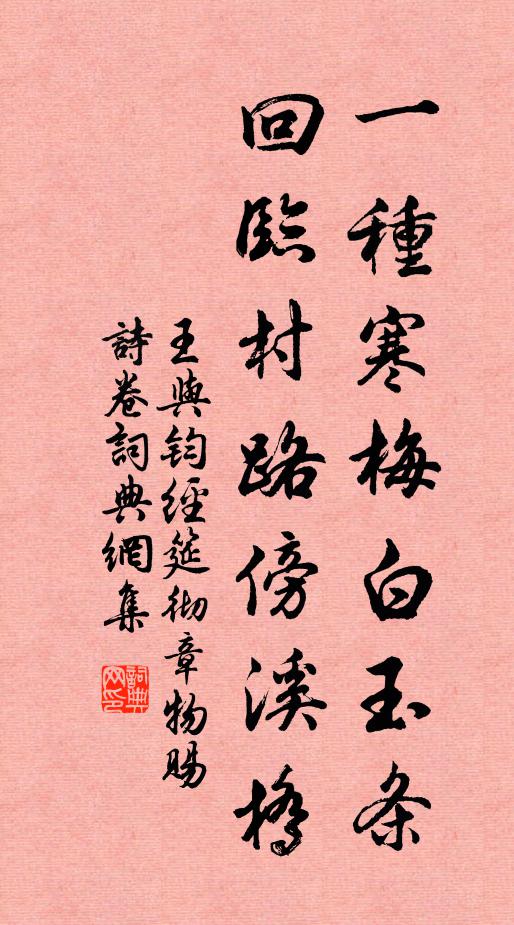 一種寒梅白玉条
回臨村路傍溪橋
王與鈞經筵彻章物賜
詩卷詞典網集
詞典网印